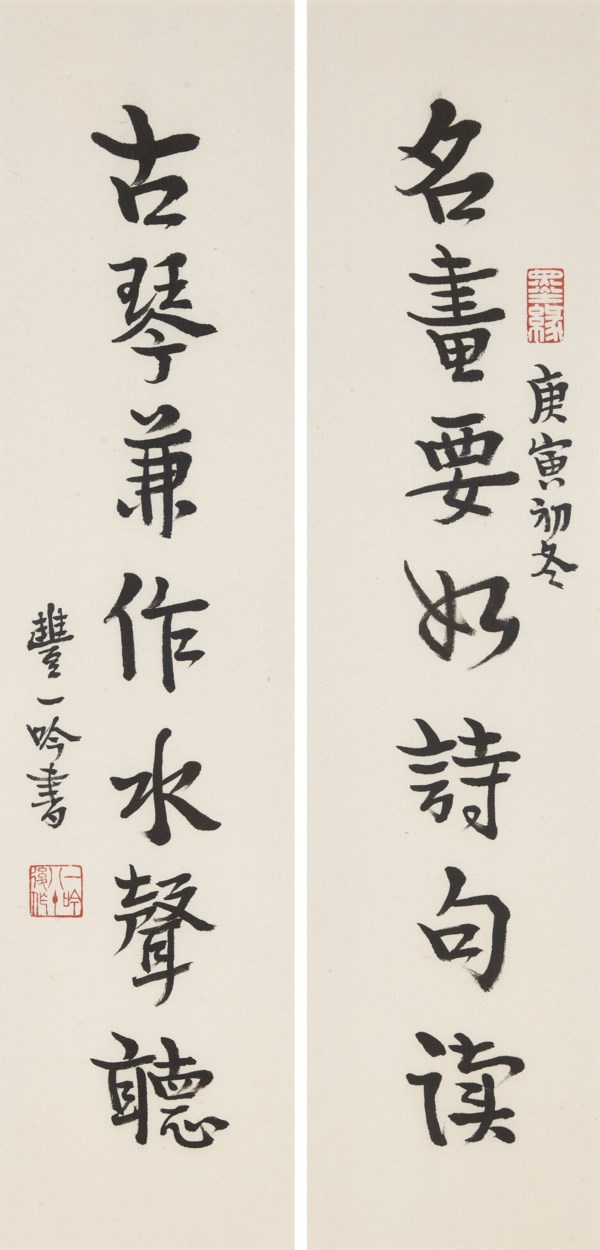 墨緣
庚寅初冬
名畫要如詩句读
古琴兼作水聲聽
豐一吟書
一吟
八十
後作